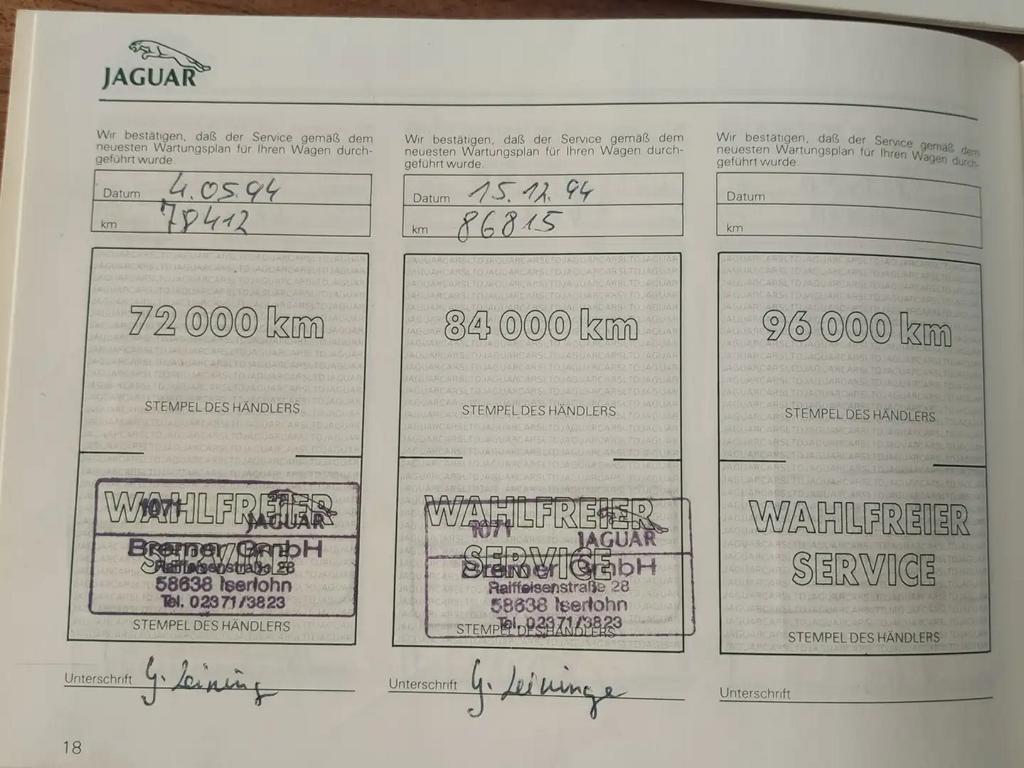 JAGUAR
Wir bestätigen, daß der Service gemäß dem
neuesten Wartungsplan für Ihren Wagen durch-
geführt wurde.
Datum 4.05.94
km 78412
72 000 km
STEMPEL DES HÄNDLERS
WAHLFREIER
SERVICE
1071
JAGUAR
Bremer GmbH
Raiffeisenstraße 28
58638 Iserlohn
Tel. 02371/3823
STEMPEL DES HÄNDLERS
Unterschrift
Wir bestätigen, daß der Service gemäß dem
neuesten Wartungsplan für Ihren Wagen durch-
geführt wurde.
Datum 15.12.94
km 86815
84 000 km
STEMPEL DES HÄNDLERS
WAHLFREIER
SERVICE
1071
JAGUAR
Bremer GmbH
Raiffeisenstraße 28
58638 Iserlohn
Tel. 02371/3823
STEMPEL DES HÄNDLERS
Unterschrift
Wir bestätigen, daß der Service gemäß dem
neuesten Wartungsplan für Ihren Wagen durch-
geführt wurde.
Datum
km
96 000 km
STEMPEL DES HÄNDLERS
WAHLFREIER
SERVICE
STEMPEL DES HÄNDLERS
Unterschrift
18